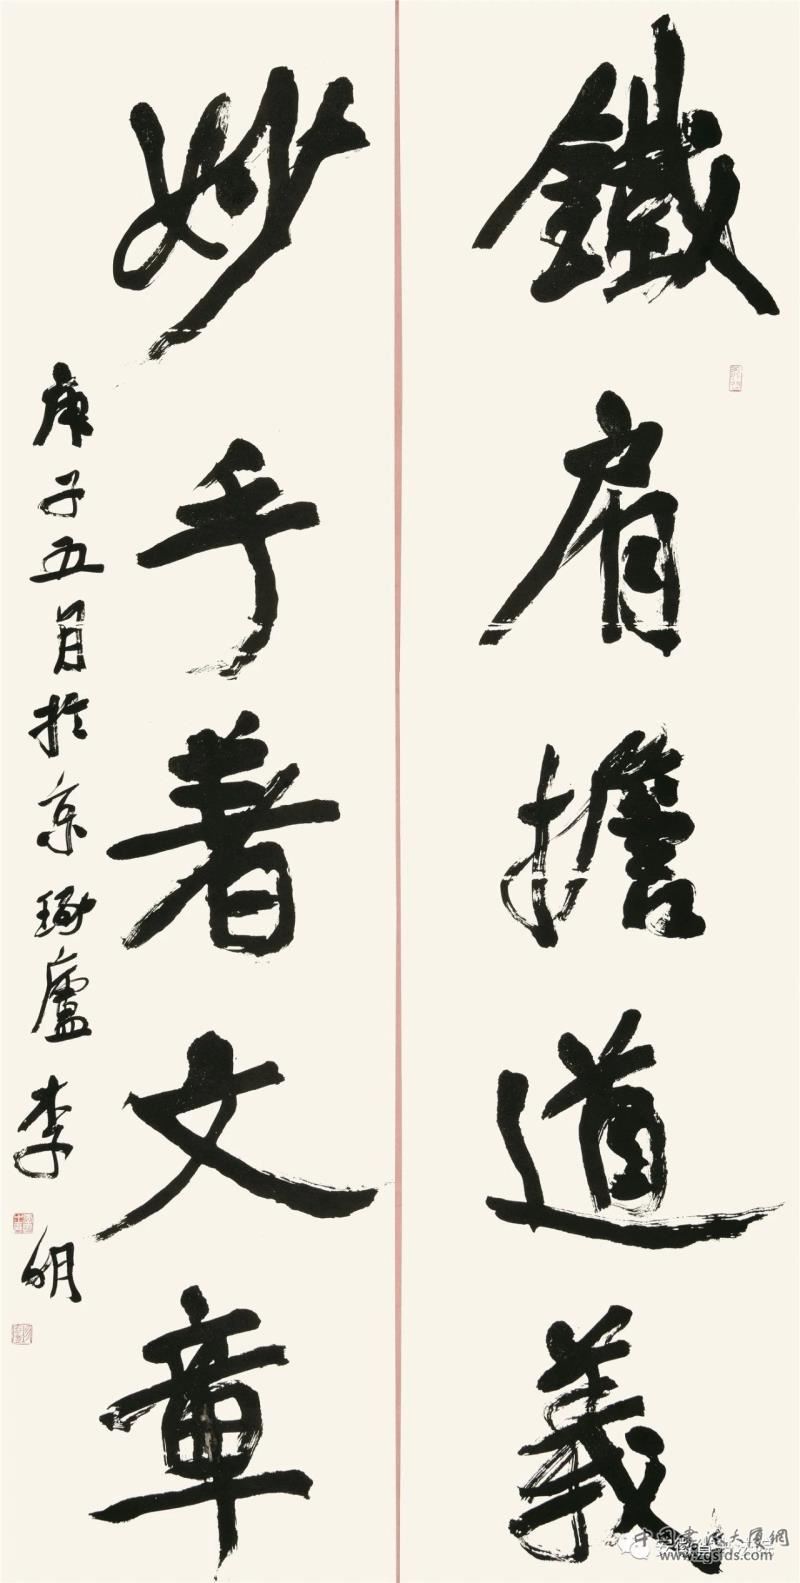 鐵肩擔道義
妙手著文章
庚子五月於京琢廬李明
中国書法大厦網
www.zgsfds.com